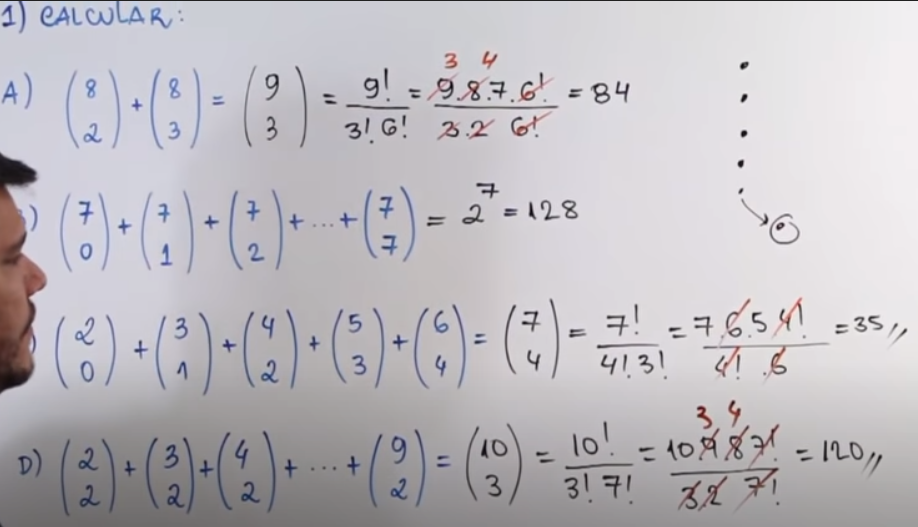 1) CALCULAR:
A) (8 2) + (8 3) = (9 3) = 9!/3!6! = 9.8.7.6!/3.2 6! = 84 3 4
) (7 0) + (7 1) + (7 2) + ... + (7 7) = 2^7 = 128
) (2 0) + (3 1) + (4 2) + (5 3) + (6 4) = (7 4) = 7!/4!.3! = 7 6.5 4!/4! .6 = 35,,
D) (2 2) + (3 2) + (4 2) + ... + (9 2) = (10 3) = 10!/3! 7! = 10 9 8 7!/3 2 7! = 120,, 3 4